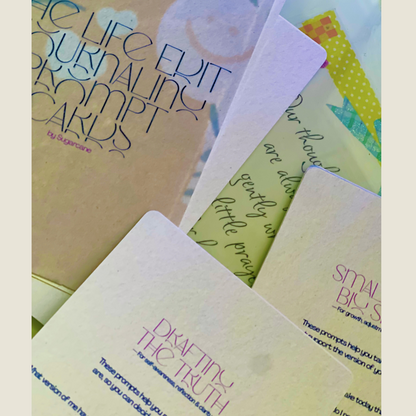 THE LIFE EDIT
JOURNALING
PROMPT
CARDS
by Sugarcane
Our though
are alw
gently w
little praye
SMAL
BIG S
—For growth, adjustm
These prompts help you ta
support the version of yo
ake today th
DRAFTING
THE TRUTH
—For self-awareness, reflection & clarity
These prompts help you
are, so you can decid
that version of me ha